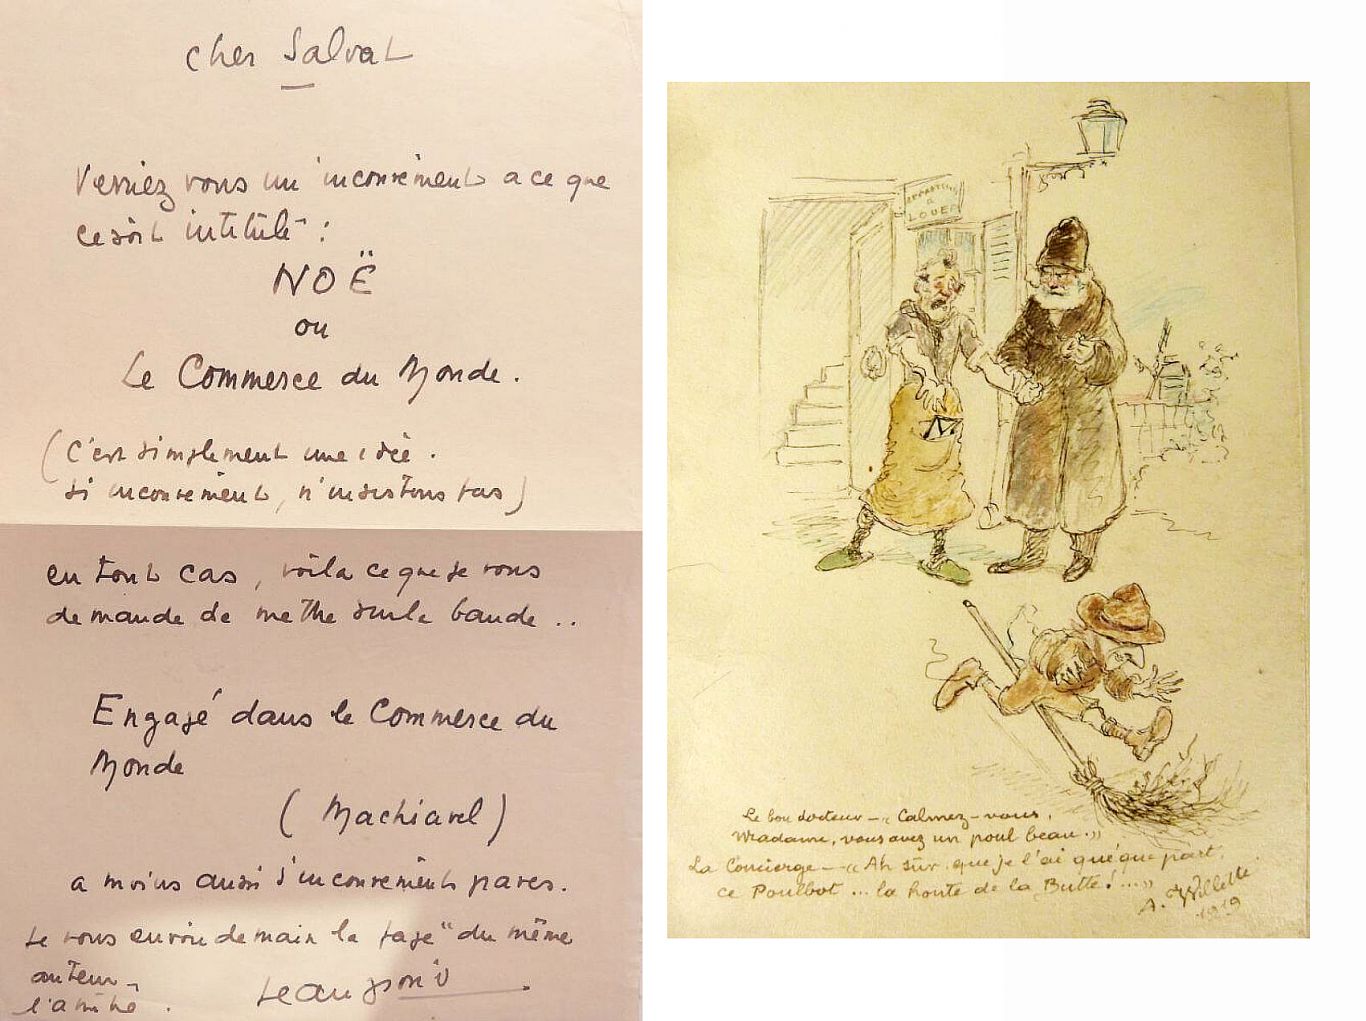 cher Salvat
Verriez vous un inconvenient a ce que
ce soit intitulé :
NOË
ou
Le Commerce du Monde.
(C'est simplement une idée.
si inconvenient, n'insistons pas)
en tout cas, voila ce que je vous
demande de mettre sur la bande ..
Engagé dans le Commerce du
Monde
(Machiavel)
a moins aussi d'inconvenients graves.
Je vous envoie demain la page "du même
auteur"
l'amitié.
Jean Giono
APPARTEMENT
A
LOUER
Le bon docteur — « Calmez-vous,
Madame, vous avez un poul beau. »
La Concierge — « Ah sûr que je l'ai quéque part,
ce Poulbot ... la honte de la Butte ! ... »
A. Willette
1919